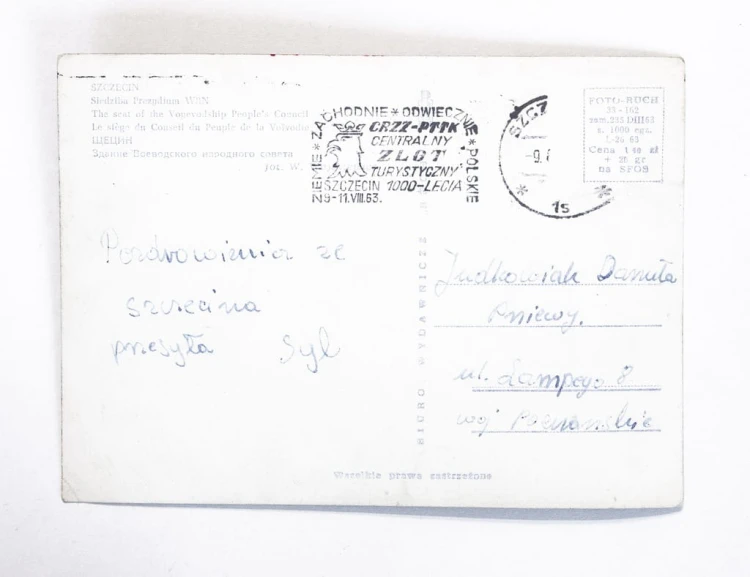 SZCZECIN
Siedziba Prezydium WRN
The seat of the Voyevodship People's Council
Le siège du Conseil du Peuple de la Voïvodie
ЩЕЦИН
Здание Воеводского народного совета
Fot. W.
ZIEMIE * ZACHODNIE * ODWIECZNIE * POLSKIE
CRZZ-PTTK
CENTRALNY
ZLOT
TURYSTYCZNY
SZCZECIN 1000-LECIA
9-11.VIII.63.
SZCZ
-9.
1s
FOTO-RUCH
35-162
zam. 235 DIII/63
n. 1000 egz.
Cena 1.40 zł
+ 20 gr
na SFOS
Pozdrowienia ze
szczecina
przesyła Syl
Judkowiak Danuta
Pniewy.
ul. Lampego 8
woj Poznańskie
BIURO WYDAWNICZE R
Wszelkie prawa zastrzeżone